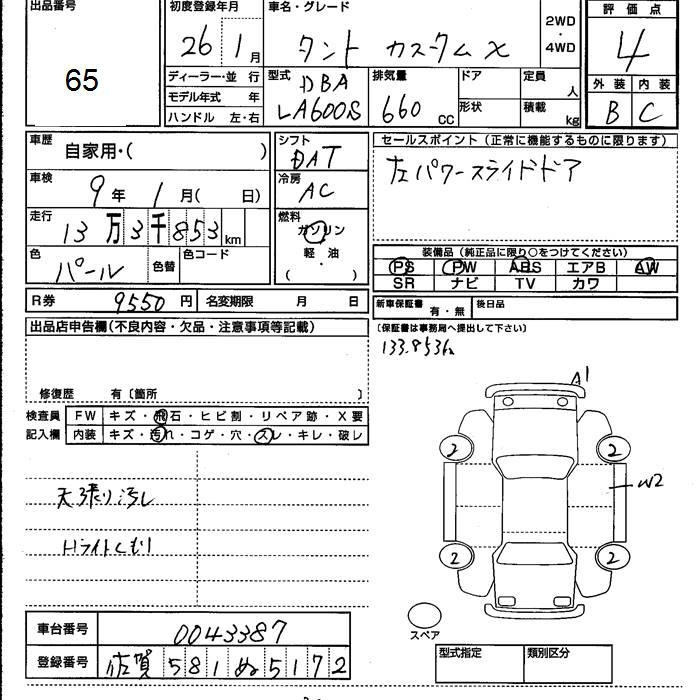 出品番号
65
初度登録年月
26年 1月
車名・グレード
タント カスタム X
2WD
・
4WD
評価点
4
外装 内装
B C
ディーラー・並行
モデル年式 年
ハンドル 左・右
型式
DBA
LA600S
排気量
660 cc
ドア
形状
定員
人
積載
kg
車歴
自家用・( )
車検
9年 1月( 日)
走行
13万3千853km
色
パール
色替
色コード
シフト
DAT
冷房
AC
燃料
ガソリン
・
軽・油
( )
R券 9550円
名変期限 月 日
セールスポイント(正常に機能するものに限ります)
左パワースライドドア
装備品(純正品に限り○をつけてください)
PS PW ABS エアB AW
SR ナビ TV カワ
新車保証書 有・無
後日品
(保証書は事務局へ提出して下さい)
133.853k
出品店申告欄(不良内容・欠品・注意事項等記載)
修復歴 有〔箇所 〕
検査員
記入欄
FW キズ・飛石・ヒビ割・リペア跡・X要
内装 キズ・汚れ・コゲ・穴・スレ・キレ・破レ
天張り汚れ
Hライトくもり
A1
2 2
W2
2 2
スペア
車台番号 0043387
登録番号 佐賀581ぬ5172
型式指定
類別区分